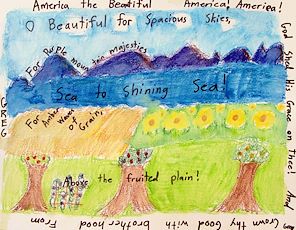 America the Beautiful America, America!
O Beautiful for Spacious Skies,
For Purple mountain majesties
Sea to Shining Sea!
For Amber Waves
of Grain,
Above the fruited plain!
God Shed His Grace on Thee! And
Crown thy Good with brotherhood From
GREG